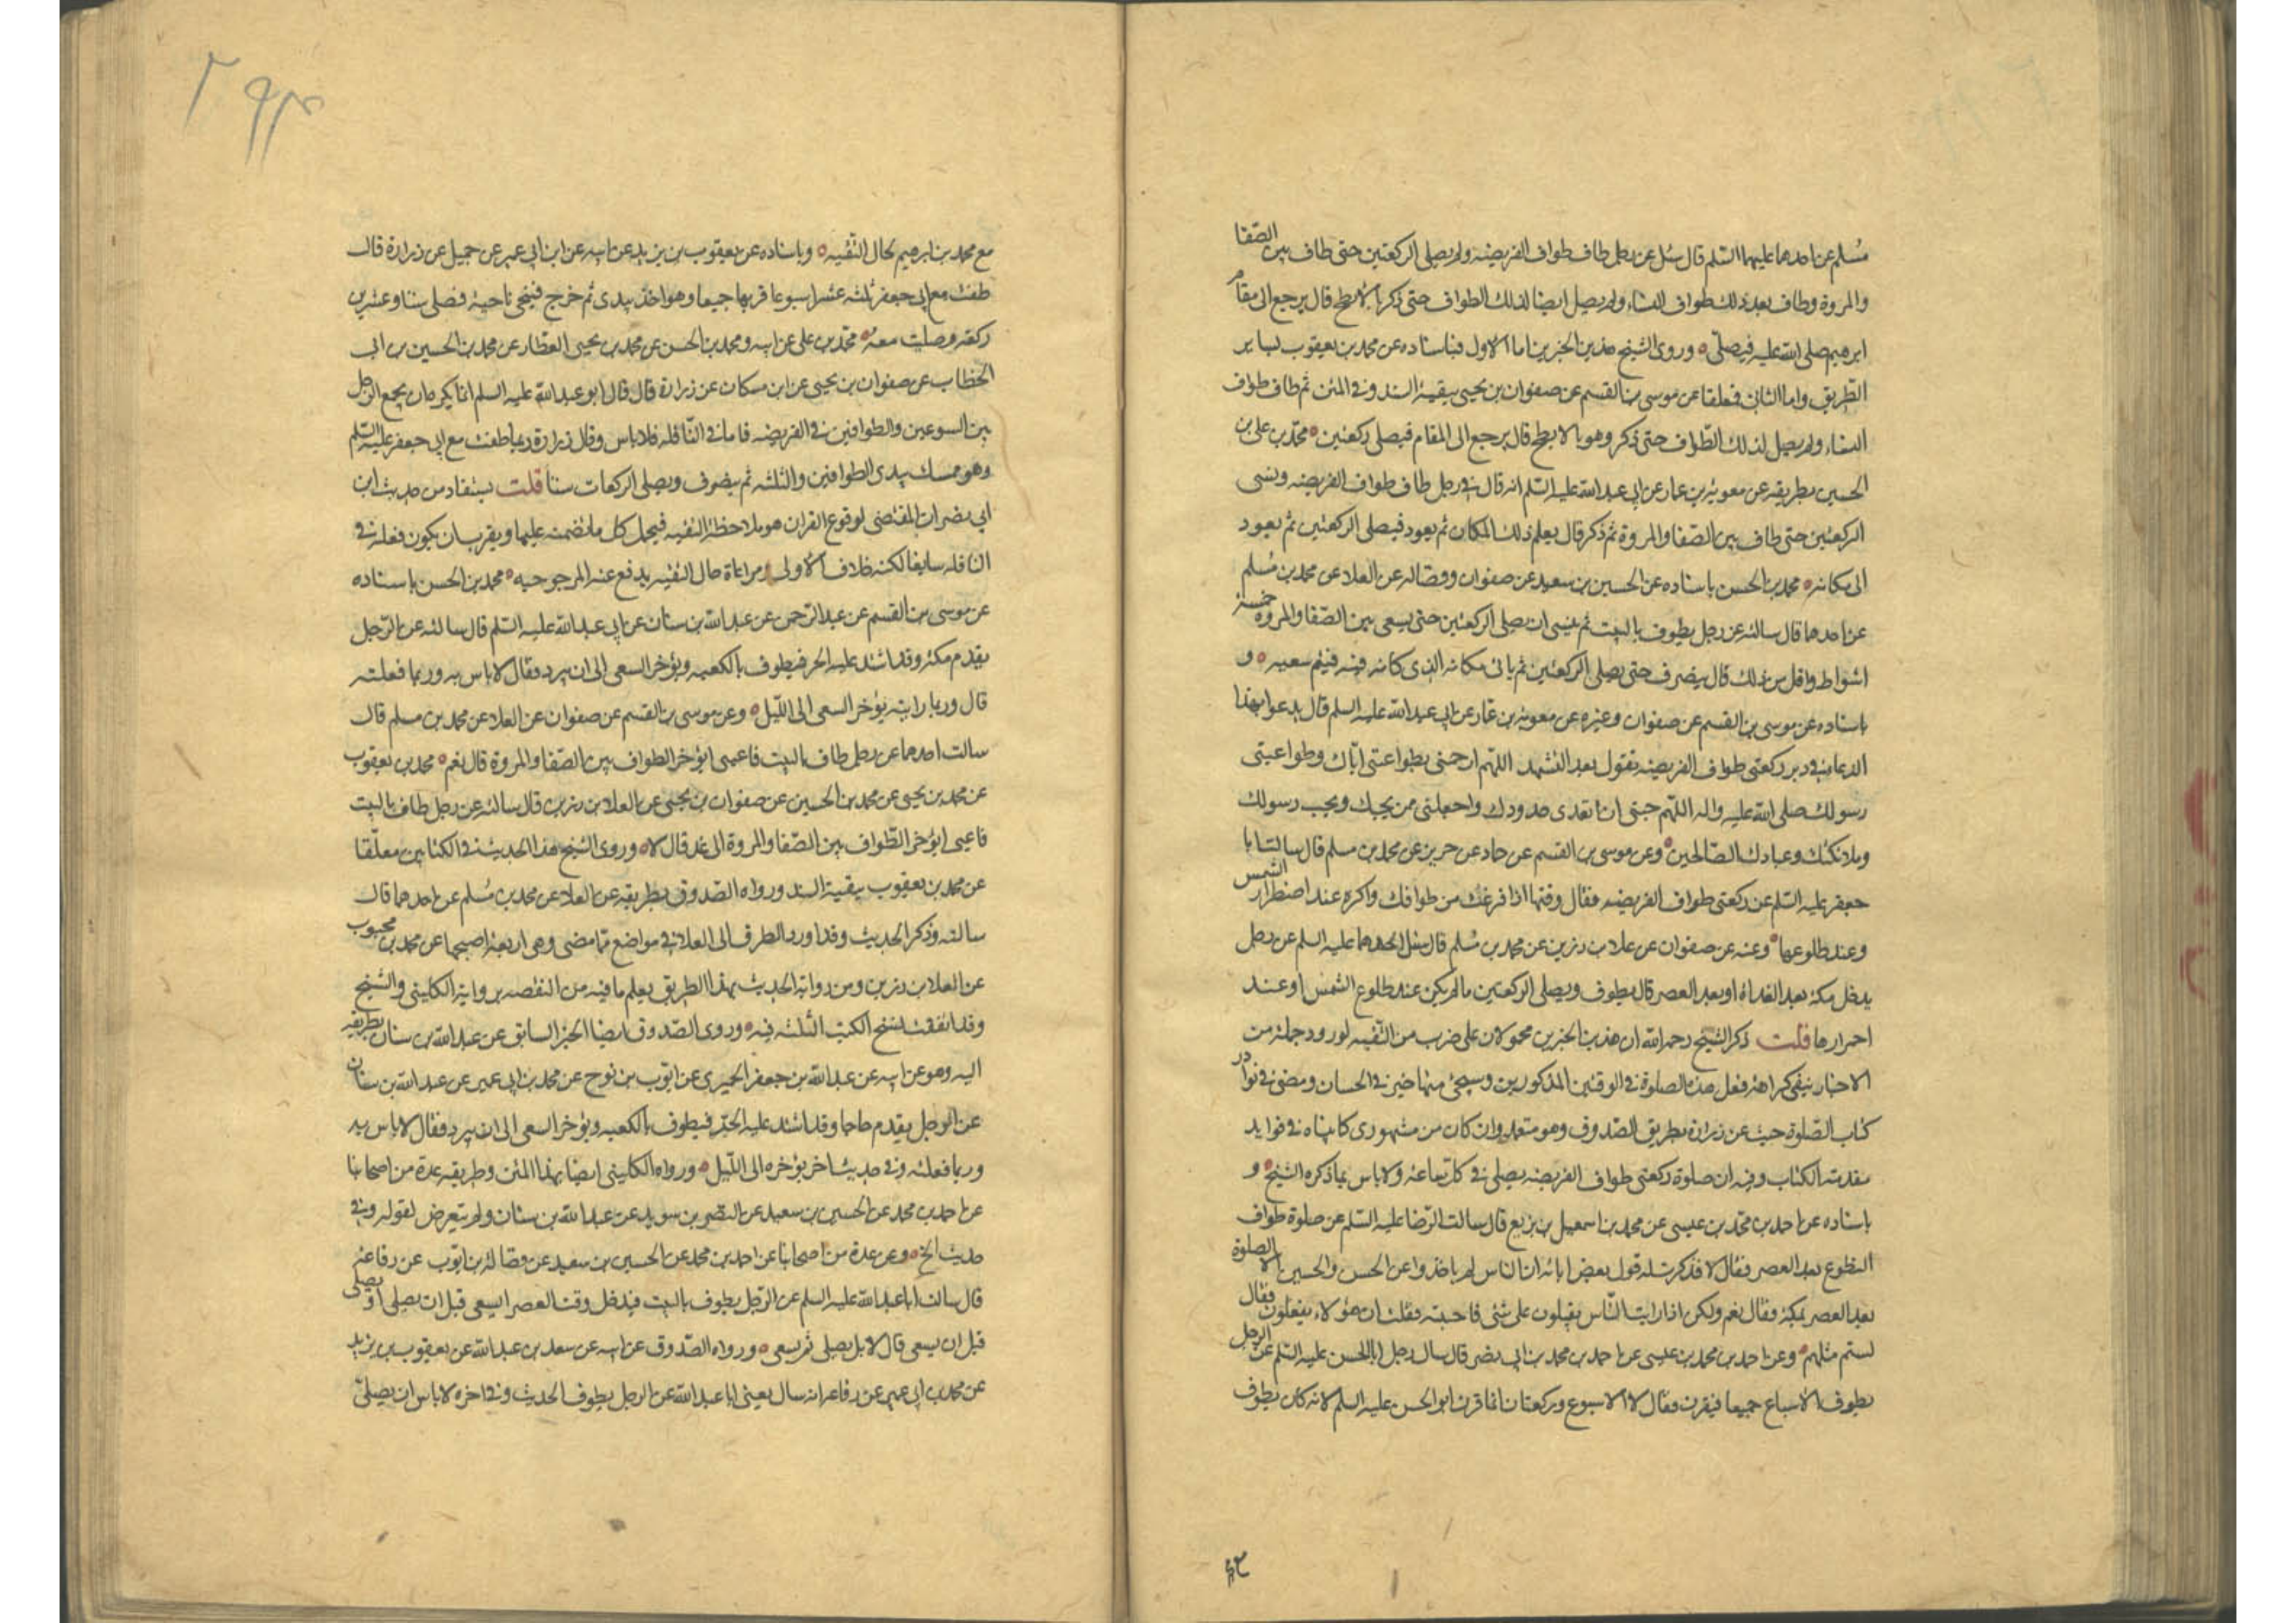 مسلم عن احدهما عليهما السلم قال سئل عن رجل طاف طواف الفريضه ولم يصل الركعتين حتى طاف بين الصفا
والمروة وطاف بعد ذلك طواف النساء ولم يصل ايضا لذلك الطواف حتى ذكر بالابطح قال يرجع الى مقام
ابرهيم صلى الله عليه فيصلى ٥ وروى الشيخ هذين الخبرين اما الاول فباسناده عن محمد بن يعقوب بساير
الطريق واما الثاني فعلقا عن موسى بن القسم عن صفوان بن يحيى ببقية السند وفي المتن ثم طاف طواف
النساء ولم يصل لذلك الطواف حتى ذكر وهو بالابطح قال يرجع الى المقام فيصلى ركعتين ٥ محمد بن علي بن
الحسين بطريقه عن معوية بن عمار عن ابي عبد الله عليه السلم انه قال في رجل طاف طواف الفريضه ونسى
الركعتين حتى طاف بين الصفا والمروة ثم ذكر قال يعلم ذلك المكان ثم يعود فيصلى الركعتين ثم يعود
الى مكانه ٥ محمد بن الحسن باسناده عن الحسين بن سعيد عن صفوان وفضاله عن العلا عن محمد بن مسلم
عن احدهما قال سالته عن رجل يطوف بالبيت ثم ينسى ان يصلى الركعتين حتى يسعى بين الصفا والمروة خمسة
اشواط واقل من ذلك قال ينصرف حتى يصلى الركعتين ثم ياتى مكانه الذى كانه فيه فيتم سعيه ٥ و
باسناده عن موسى بن القسم عن صفوان وغيره عن معوية بن عمار عن ابي عبد الله عليه السلم قال يدعوا بهذا
الدعاء في دبر ركعتى طواف الفريضه تقول بعد التشهد اللهم ارحمنى بطواعتى اياك وطواعيتى
رسولك صلى الله عليه واله اللهم جنبى ان اتعدى حدودك واجعلنى من يحبك ويحب رسولك
وملائكتك وعبادك الصالحين ٥ وعن موسى بن القسم عن حماد عن حريز عن محمد بن مسلم قال سالت ابا
جعفر عليه السلم عن ركعتى طواف الفريضه فقال وقتها اذا فرغت من طوافك واكره عند اصفرار الشمس
وعند طلوعها ٥ وعنه عن صفوان عن علاء بن رزين عن محمد بن مسلم قال سئل احدهما عليه السلم عن رجل
يدخل مكة بعد الغداة او بعد العصر قال يطوف ويصلى الركعتين مالم يكن عند طلوع الشمس او عند
احمرارها قلت ذكر الشيخ رحمه الله ان هذين الخبرين محمولان على ضرب من التقيه لورود جملة من
الاخبار بنفى كراهة فعل هذه الصلوة في الوقتين المذكورين وسيجئ منها خبر في الحسان ومضى في نوادر
كتاب الصلوة حديث عن زرارة بطريق الصدوق وهو متعدد وان كان من مشهورى كما بيناه في فوايد
مقدمة الكتاب وفيه ان صلوة ركعتى طواف الفريضه يصلى في كل ساعة ولا باس بما ذكره الشيخ ٥ و
باسناده عن احمد بن محمد بن عيسى عن محمد بن اسمعيل بن بزيع قال سالت الرضا عليه السلم عن صلوة طواف
التطوع بعد العصر فقال لا فذكرت له قول بعض ابائه ان الناس لم ياخذوا عن الحسن والحسين الا الصلوة
بعد العصر بمكة فقال نعم ولكن اذا رايت الناس يقبلون على شئ فاجتنبه فقلت ان هؤلاء يفعلون فقال
لستم مثلهم ٥ وعن احمد بن محمد بن عيسى عن احمد بن محمد بن ابي نصر قال سال رجل ابا الحسن عليه السلم عن الرجل
يطوف الاسباع جميعا فيقرن فقال لا الا الاسبوع وركعتان انما قرن ابو الحسن عليه السلم لانه كان يطوف
مع محمد بن ابرهيم لحال التقيه ٥ وباسناده عن يعقوب بن يزيد عن ابيه عن ابن ابي عمير عن جميل عن زرارة قال
طفت مع ابي جعفر ثلثة عشر اسبوعا قرنها جميعا وهو اخذ بيدى ثم خرج فتنحى ناحية فصلى ستا وعشرين
ركعة وصليت معه ٥ محمد بن علي عن ابيه ومحمد بن الحسن عن محمد بن يحيى العطار عن محمد بن الحسين بن ابي
الخطاب عن صفوان بن يحيى عن ابن مسكان عن زرارة قال قال ابو عبد الله عليه السلم انما يكره ان يجمع الرجل
بين السبوعين والطوافين في الفريضه فاما في النافله فلا باس وقال زرارة ربما طفت مع ابي جعفر عليه السلم
وهو ممسك بيدى الطوافين والثلثه ثم ينصرف ويصلى الركعات ستا قلت يستفاد من حديث ابن
ابي نصر ان المقتضى لوقوع القران هو ملاحظة التقيه فيحمل كل ما تضمنه عليها ويقرب ان يكون فعله في
النافله سايغا لكنه خلاف الاولى ومراعاة حال التقيه يدفع عنه المرجوحيه ٥ محمد بن الحسن باسناده
عن موسى بن القسم عن عبد الرحمن عن عبد الله بن سنان عن ابي عبد الله عليه السلم قال سالته عن الرجل
يقدم مكة وقد اشتد عليه الحر فيطوف بالكعبه ويؤخر السعى الى ان يبرد فقال لا باس به وربما فعلته
قال وربما رايته يؤخر السعى الى الليل ٥ وعن موسى بن القسم عن صفوان عن العلا عن محمد بن مسلم قال
سالت احدهما عن رجل طاف بالبيت فاعيى ايؤخر الطواف بين الصفا والمروة قال نعم ٥ محمد بن يعقوب
عن محمد بن يحيى عن محمد بن الحسين عن صفوان بن يحيى عن العلا بن رزين قال سالته عن رجل طاف بالبيت
فاعيى ايؤخر الطواف بين الصفا والمروة الى غد قال لا ٥ وروى الشيخ هذا الحديث في الكتابين معلقا
عن محمد بن يعقوب ببقية السند ورواه الصدوق بطريقه عن العلا عن محمد بن مسلم عن احدهما قال
سالته وذكر الحديث وقد اورد الطرف الى العلا في مواضع مما مضى وهى اربعة اصحها عن محمد بن محبوب
عن العلا بن رزين ومن رواية الحديث بهذا الطريق يعلم ما فيه من النقصه برواية الكلينى والشيخ
وقد اتفقت نسخ الكتب الثلثه فيه ٥ وروى الصدوق ايضا الخبر السابق عن عبد الله بن سنان بطريقه
اليه وهو عن ابيه عن عبد الله بن جعفر الحميرى عن ايوب بن نوح عن محمد بن ابي عمير عن عبد الله بن سنان
عن الرجل يقدم حاجا وقد اشتد عليه الحر فيطوف بالكعبه ويؤخر السعى الى ان يبرد فقال لا باس به
وربما فعلته وفي حديث اخر يؤخره الى الليل ٥ ورواه الكلينى ايضا بهذا المتن وطريقه عدة من اصحابنا
عن احمد بن محمد عن الحسين بن سعيد عن النضر بن سويد عن عبد الله بن سنان ولم يتعرض لقوله وفي
حديث الخ ٥ وعن عدة من اصحابنا عن احمد بن محمد عن الحسين بن سعيد عن فضالة بن ايوب عن رفاعة
قال سالت ابا عبد الله عليه السلم عن الرجل يطوف بالبيت فيدخل وقت العصر ايسعى قبل ان يصلى او يصلى
قبل ان يسعى قال لا بل يصلى ثم يسعى ٥ ورواه الصدوق عن ابيه عن سعد بن عبد الله عن يعقوب بن يزيد
عن محمد بن ابي عمير عن رفاعة انه سال يعنى ابا عبد الله عن الرجل يطوف الحديث وفي اخره لا باس ان يصلى